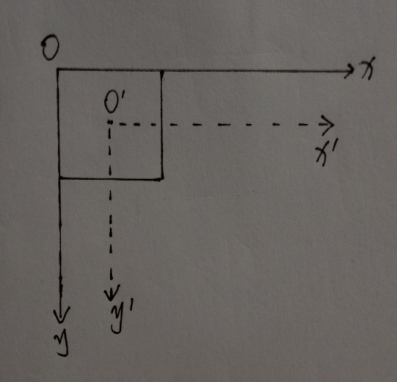 O
x
O'
x'
y'
y